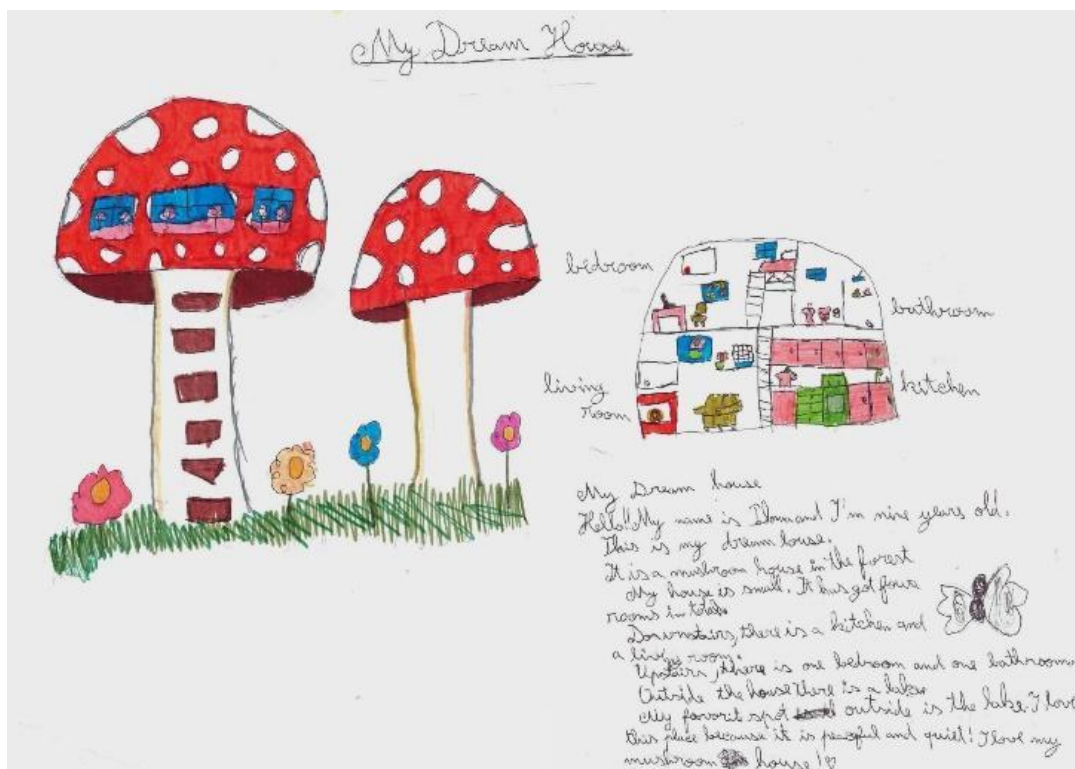 My Dream House
bedroom
bathroom
living
room
kitchen
My Dream house
Hello! My name is and I'm nine years old.
This is my dream house.
It is a mushroom house in the forest
My house is small. It has got four
rooms in total.
Downstairs, there is a kitchen and
a living room.
Upstairs, there is one bedroom and one bathroom
Outside the house there is a lake
My favorit spot outside is the lake. I love
this place because it is peacful and quiet! I love my
mushroom house!♡